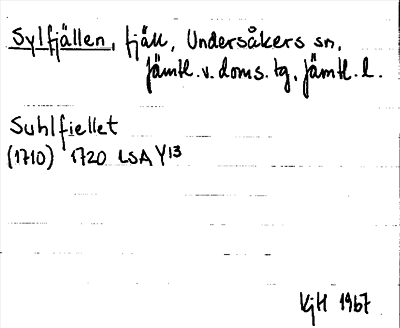 Sylfjällen, fjäll, Undersåkers sn,
Jämtl. v. doms. tg, Jämtl. l.
Suhlfiellet
(1710) 1720 LSA Y13
KjH 1967